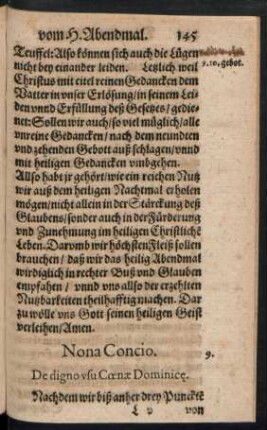 vom H. Abendmal. 145
Teuffel: Also können sich auch die Lügen
nicht bey einander leiden. Letzlich weil
9. 10. gebot.
Christus mit eitel reinen Gedancken dem
Vatter in vnser Erlösung/ in seinem Lei-
den vnnd Erfüllung deß Gesetzes/ gedie-
net: Sollen wir auch/ so viel müglich/ alle
vnreine Gedancken/ nach dem neundten vnd
zehenden Gebott auß schlagen/ vnnd
mit heiligen Gedancken vmbgehen.
Allso habt jr gehört/ wie ein reichen Nutz
wir auß dem heiligen Nachtmal erholen
mögen/ nicht allein in der Stärckung deß
Glaubens/ sonder auch in der Fürderung
vnd Zunehmung im heiligen Christliche
Leben. Darumb wir höchsten Fleiß sollen
brauchen/ daß wir das heilig Abendmal
wirdiglich in rechter Buß vnd Glauben
empfahen/ vnnd vns allso der erzehlten
Nutzbarkeiten theilhafftig machen. Dar
zu wölle vns Gott seinen heiligen Geist
verleihen/ Amen.
Nona Concio. 9.
De digno vsu Cœnæ Dominicę.
Nachdem wir biß anher drey Punckte
L v von